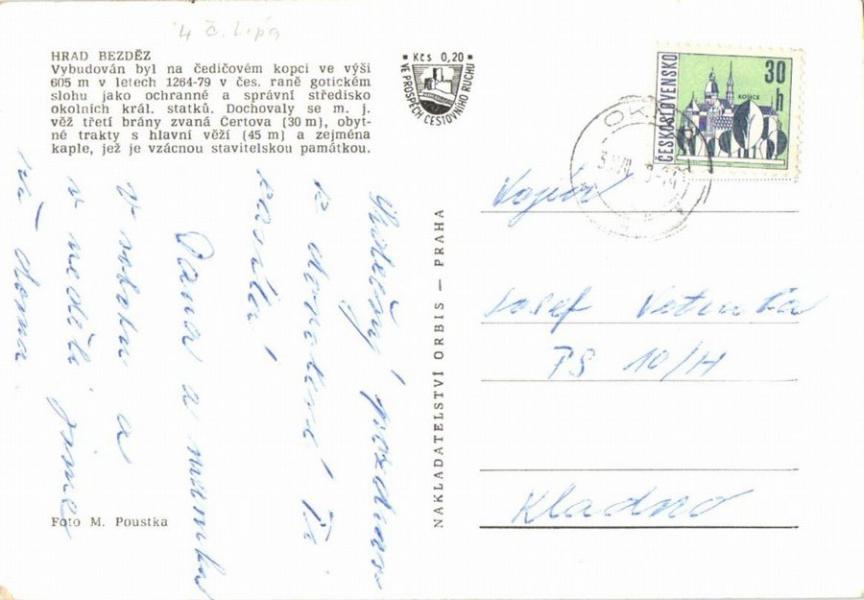 4 č. Lípa
HRAD BEZDĚZ
Vybudován byl na čedičovém kopci ve výši
605 m v letech 1264-79 v čes. raně gotickém
slohu jako ochranné a správní středisko
okolních král. statků. Dochovaly se m. j.
věž třetí brány zvaná Čertova (30 m), obyt-
né trakty s hlavní věží (45 m) a zejména
kaple, jež je vzácnou stavitelskou památkou.
Kčs 0,20
VE PROSPĚCH CESTOVNÍHO RUCHU
ČESKOSLOVENSKO
30 h
KOŠICE
Srdečný pozdrav
z dovolené Ti
posílá
Dana a mamka
V sobotu a
v neděli jsme
už doma
Foto M. Poustka
NAKLADATELSTVÍ ORBIS — PRAHA
Vojín
Josef
PS 10/H
Kladno